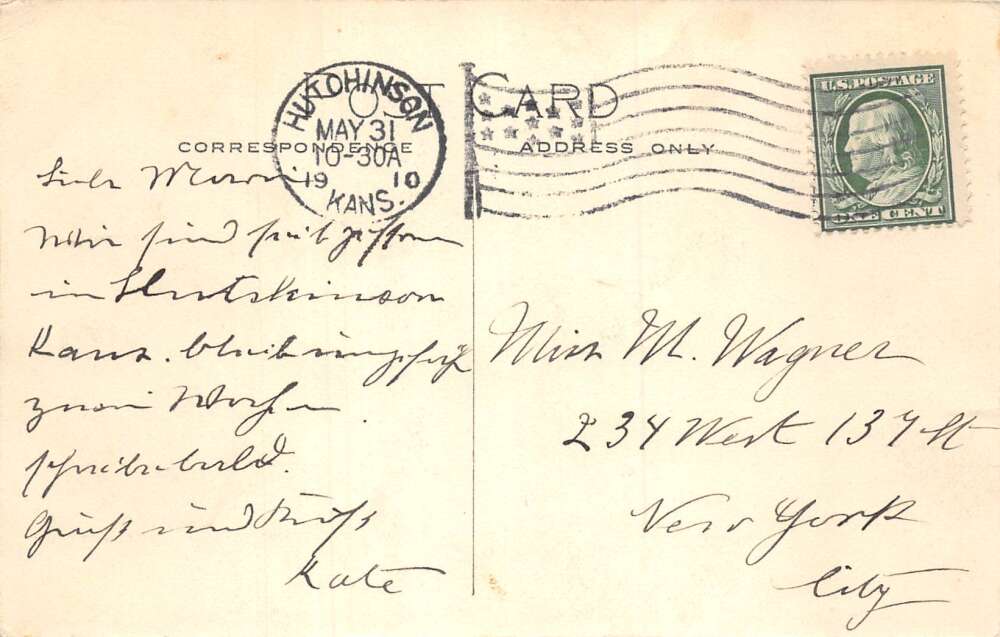 POST CARD
CORRESPONDENCE
ADDRESS ONLY
HUTCHINSON
MAY 31
10-30A
19 10
KANS.
U.S. POSTAGE
ONE CENT
Liebe
Wir sind seit gestern
in Hutchinson
Kans. bleib ungefähr
zwei Wochen
schreibe bald.
Gruß und Kuß
Kate
Miss M. Wagner
234 West 137 St
New York
City